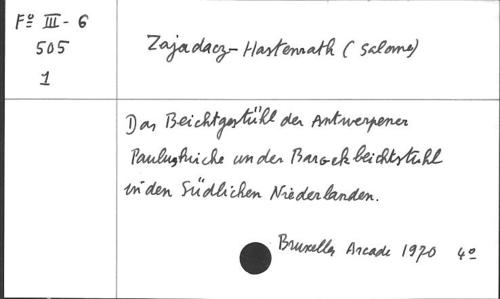 Fº III - 6
505
1
Zajadacz-Hastenrath (Salome)
Das Beichtgestühl der Antwerpener
Pauluskirche und der Barockbeichtstuhl
in den Südlichen Niederlanden.
Bruxelles Arcade 1970 4º